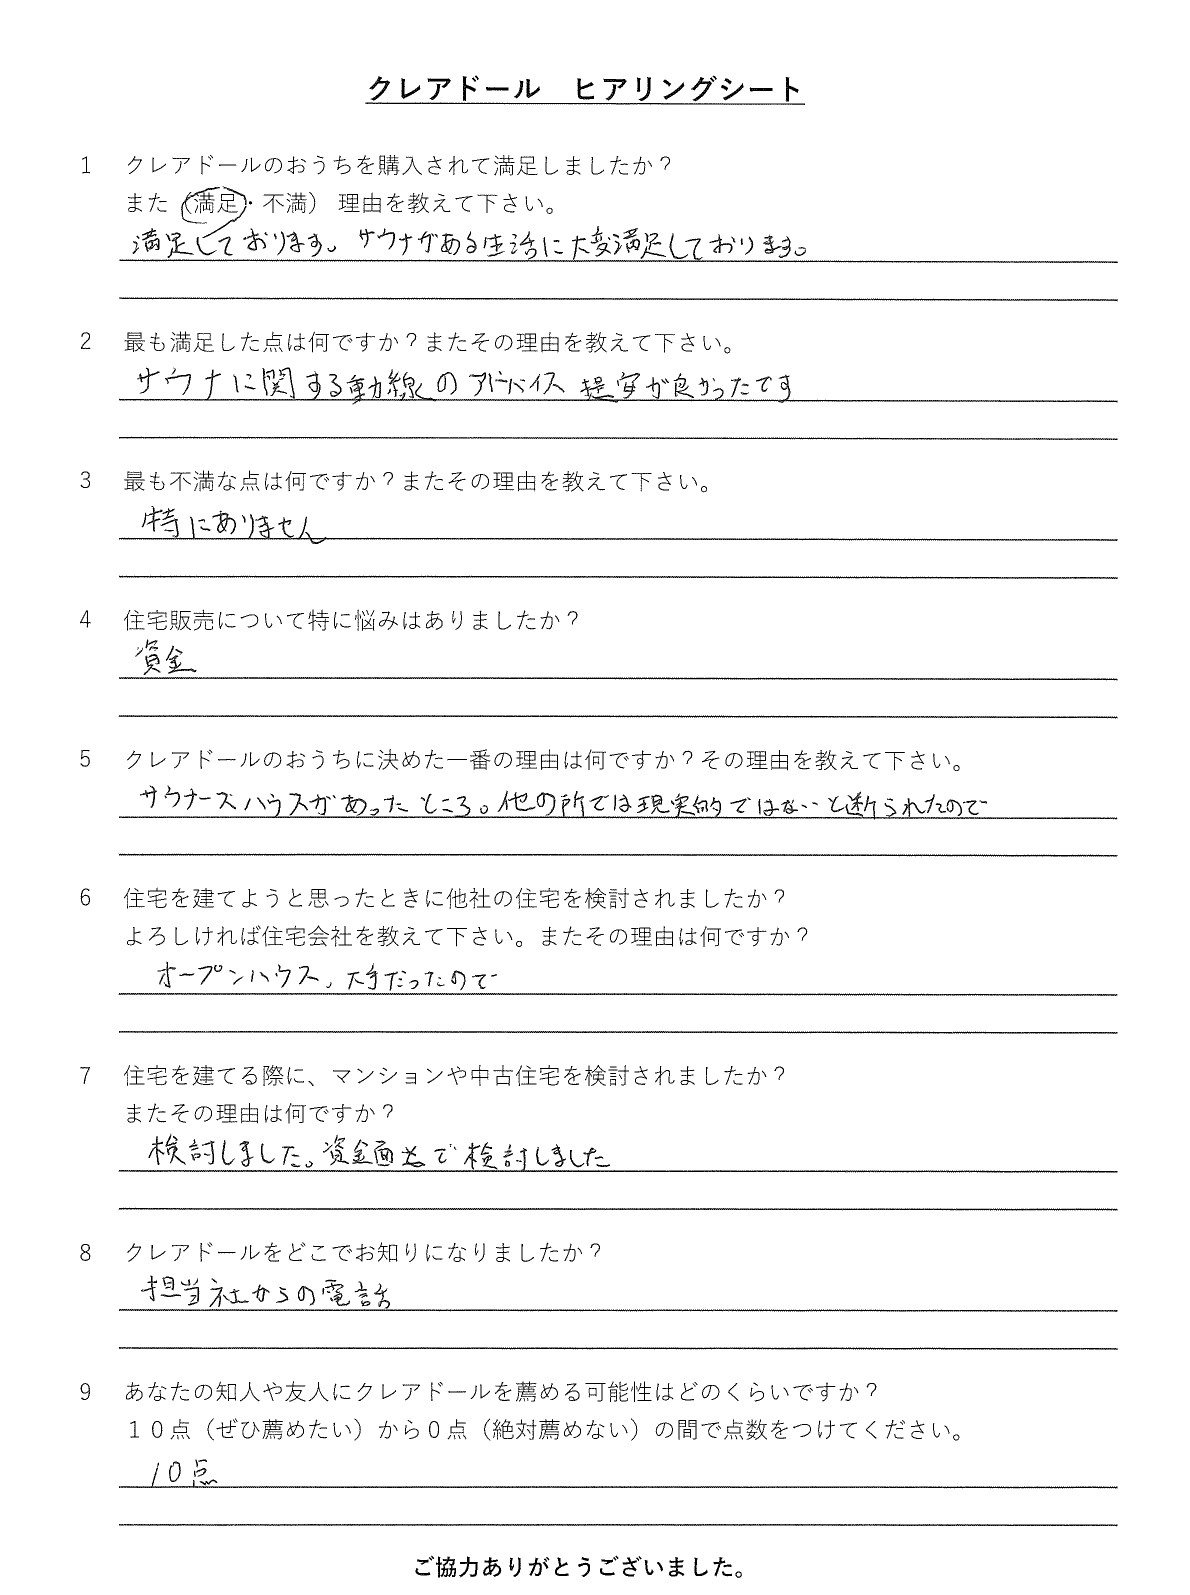 クレアドール　ヒアリングシート
1 クレアドールのおうちを購入されて満足しましたか？
また（満足・不満） 理由を教えて下さい。
満足しております。サウナがある生活に大変満足しております。
2 最も満足した点は何ですか？またその理由を教えて下さい。
サウナに関する動線のアドバイス 提案が良かったです
3 最も不満な点は何ですか？またその理由を教えて下さい。
特にありません
4 住宅販売について特に悩みはありましたか？
資金
5 クレアドールのおうちに決めた一番の理由は何ですか？その理由を教えて下さい。
サウナーズハウスがあったところ。他の所では現実的ではないと断られたので
6 住宅を建てようと思ったときに他社の住宅を検討されましたか？
よろしければ住宅会社を教えて下さい。またその理由は何ですか？
オープンハウス、大手だったので
7 住宅を建てる際に、マンションや中古住宅を検討されましたか？
またその理由は何ですか？
検討しました。資金面で検討しました
8 クレアドールをどこでお知りになりましたか？
担当社からの電話
9 あなたの知人や友人にクレアドールを薦める可能性はどのくらいですか？
１０点（ぜひ薦めたい）から０点（絶対薦めない）の間で点数をつけてください。
10点
ご協力ありがとうございました。